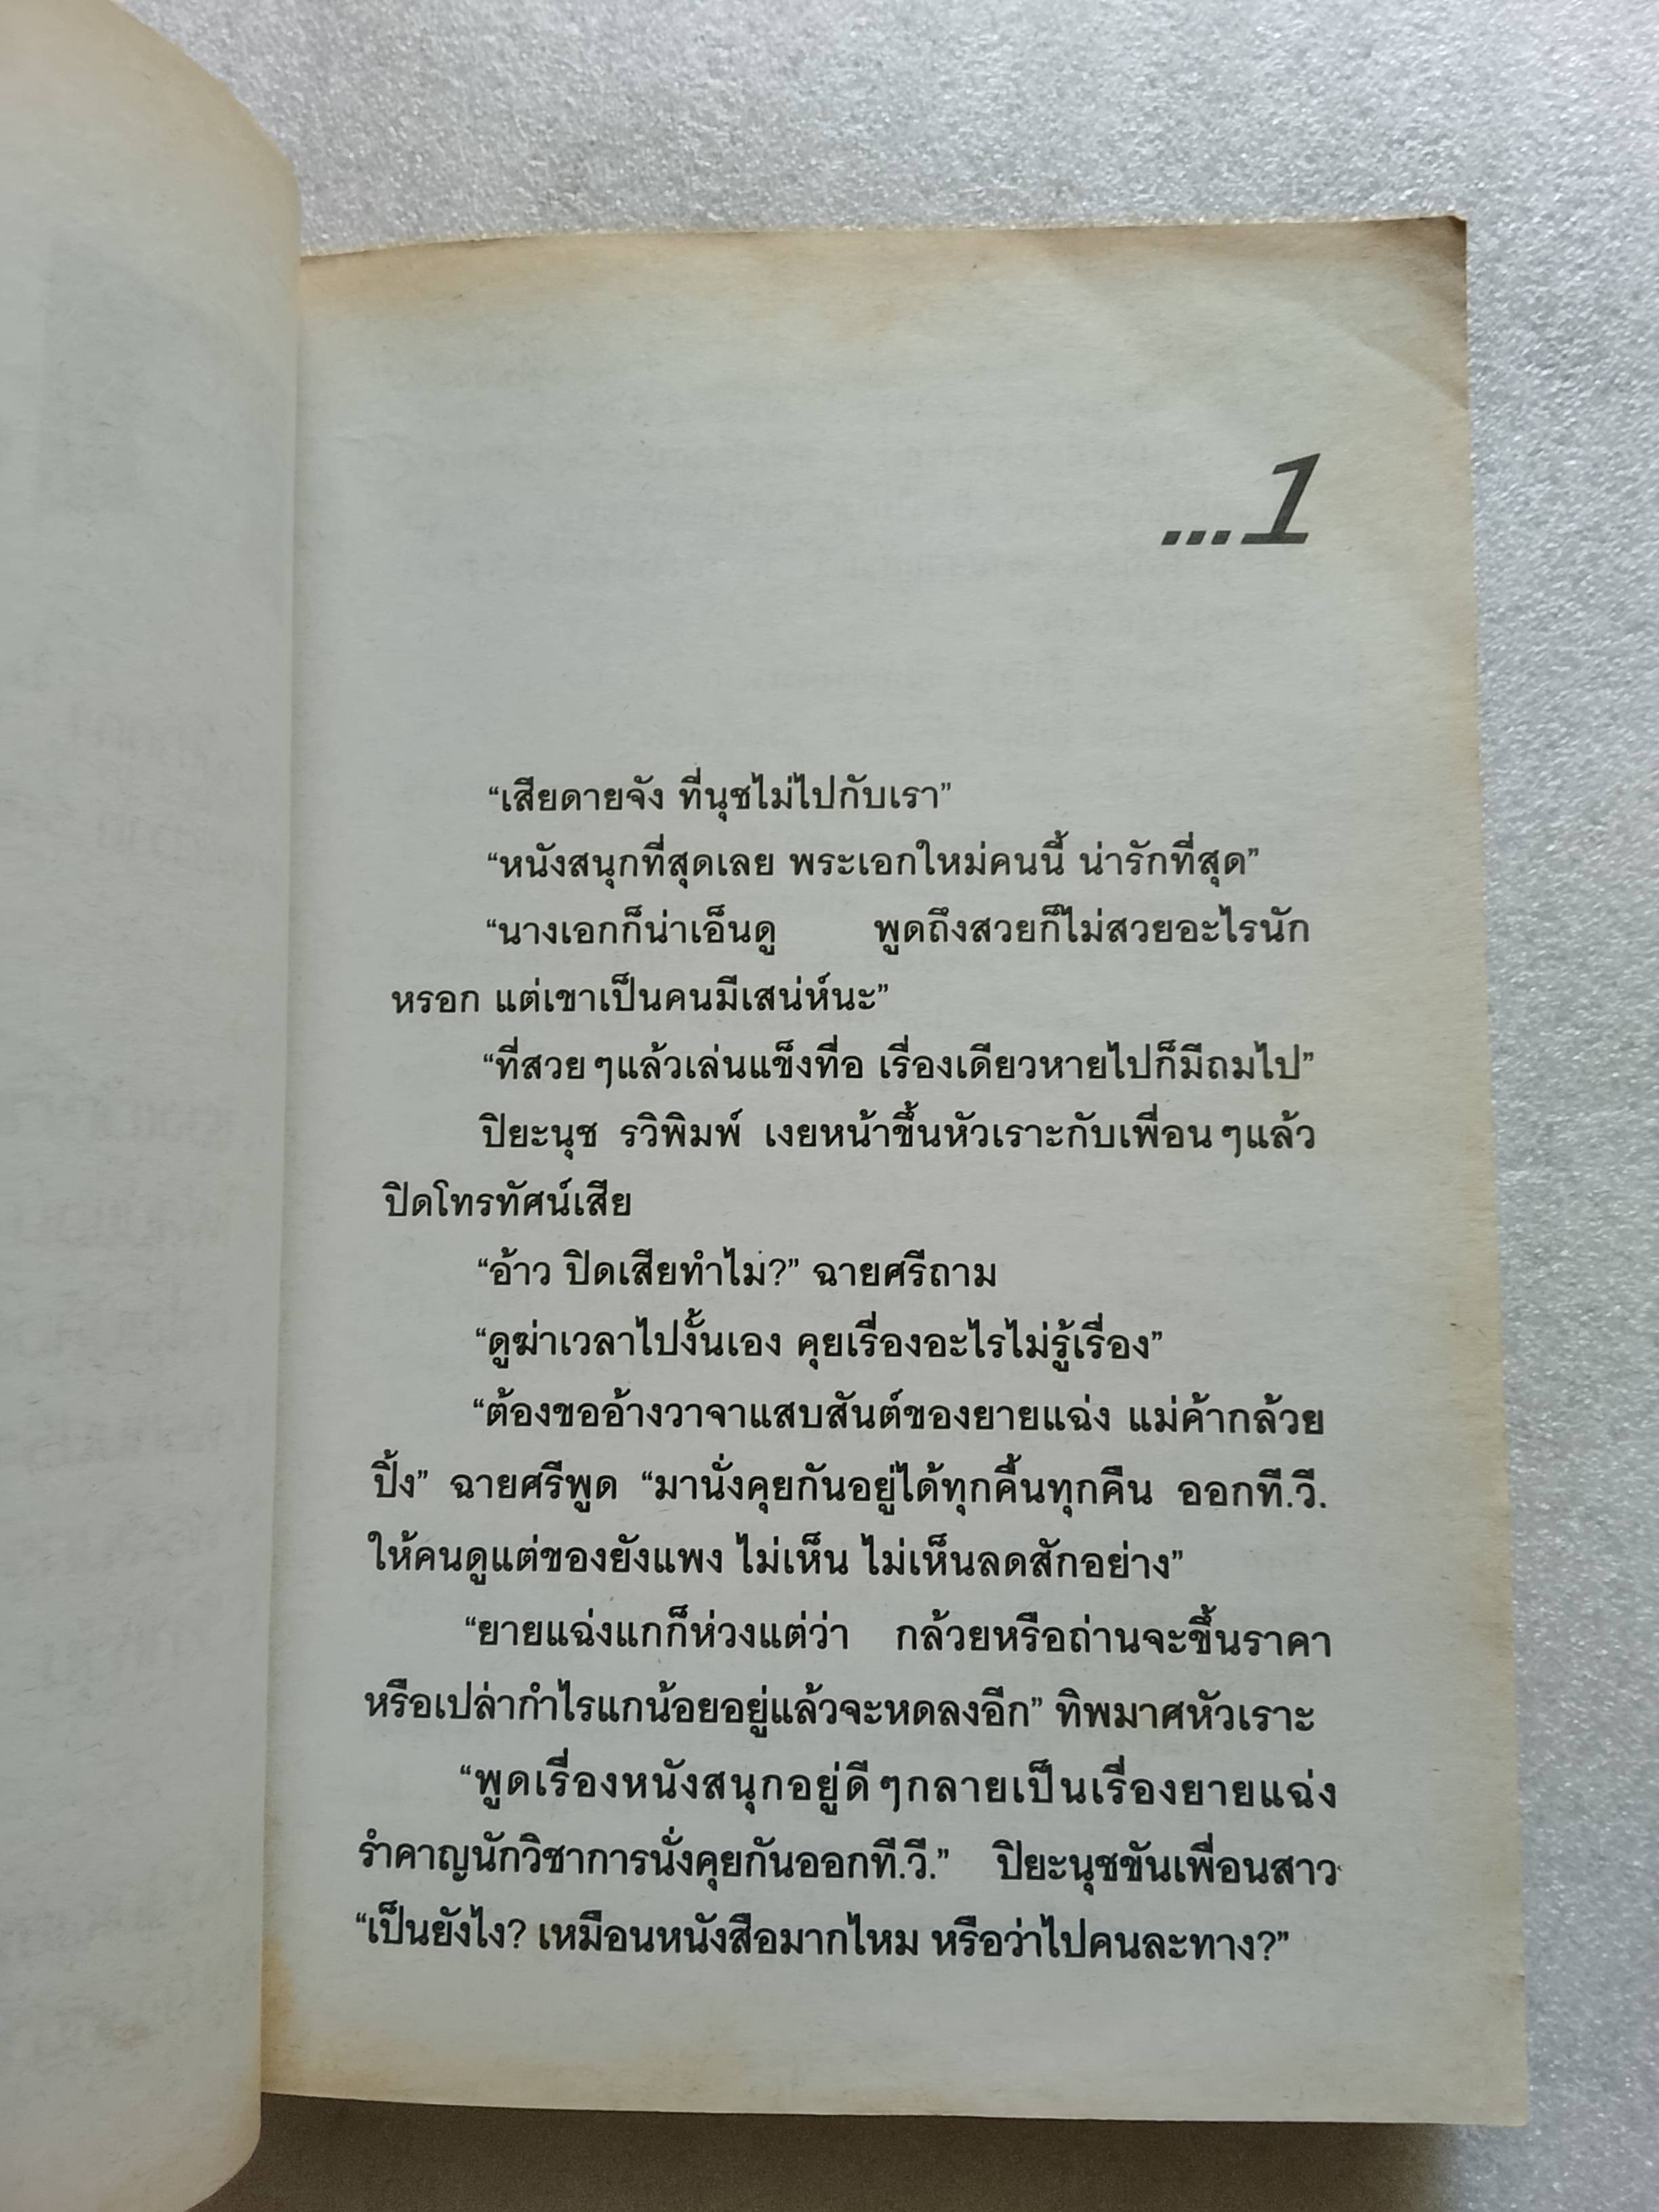 ...1
“เสียดายจัง ที่นุชไม่ไปกับเรา”
“หนังสนุกที่สุดเลย พระเอกใหม่คนนี้ น่ารักที่สุด”
“นางเอกก็น่าเอ็นดู พูดถึงสวยก็ไม่สวยอะไรนัก
หรอก แต่เขาเป็นคนมีเสน่ห์นะ”
“ที่สวยๆแล้วเล่นแข็งทื่อ เรื่องเดียวหายไปก็มีถมไป”
ปิยะนุช รวิพิมพ์ เงยหน้าขึ้นหัวเราะกับเพื่อนๆแล้ว
ปิดโทรทัศน์เสีย
“อ้าว ปิดเสียทำไม?” ฉายศรีถาม
“ดูฆ่าเวลาไปงั้นเอง คุยเรื่องอะไรไม่รู้เรื่อง”
“ต้องขออ้างวาจาแสบสันต์ของยายแฉ่ง แม่ค้ากล้วย
ปิ้ง” ฉายศรีพูด “มานั่งคุยกันอยู่ได้ทุกคื้นทุกคืน ออกที.วี.
ให้คนดูแต่ของยังแพง ไม่เห็น ไม่เห็นลดสักอย่าง”
“ยายแฉ่งแกก็ห่วงแต่ว่า กล้วยหรือถ่านจะขึ้นราคา
หรือเปล่ากำไรแกน้อยอยู่แล้วจะหดลงอีก” ทิพมาศหัวเราะ
“พูดเรื่องหนังสนุกอยู่ดีๆกลายเป็นเรื่องยายแฉ่ง
รำคาญนักวิชาการนั่งคุยกันออกที.วี.” ปิยะนุชขันเพื่อนสาว
“เป็นยังไง? เหมือนหนังสือมากไหม หรือว่าไปคนละทาง?”